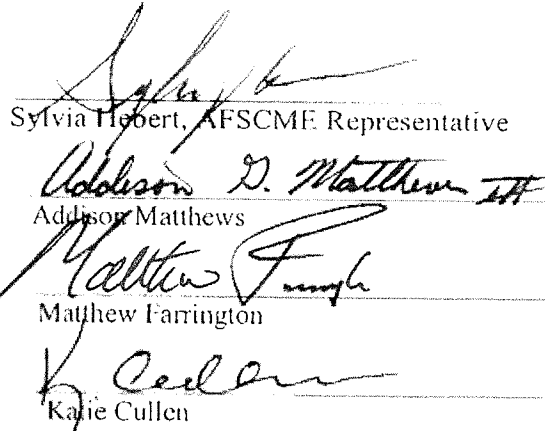 Sylvia Hebert, AFSCME Representative
Addison G. Matthews III
Addison Matthews
Matthew
Matthew Farrington
K Cullen
Katie Cullen